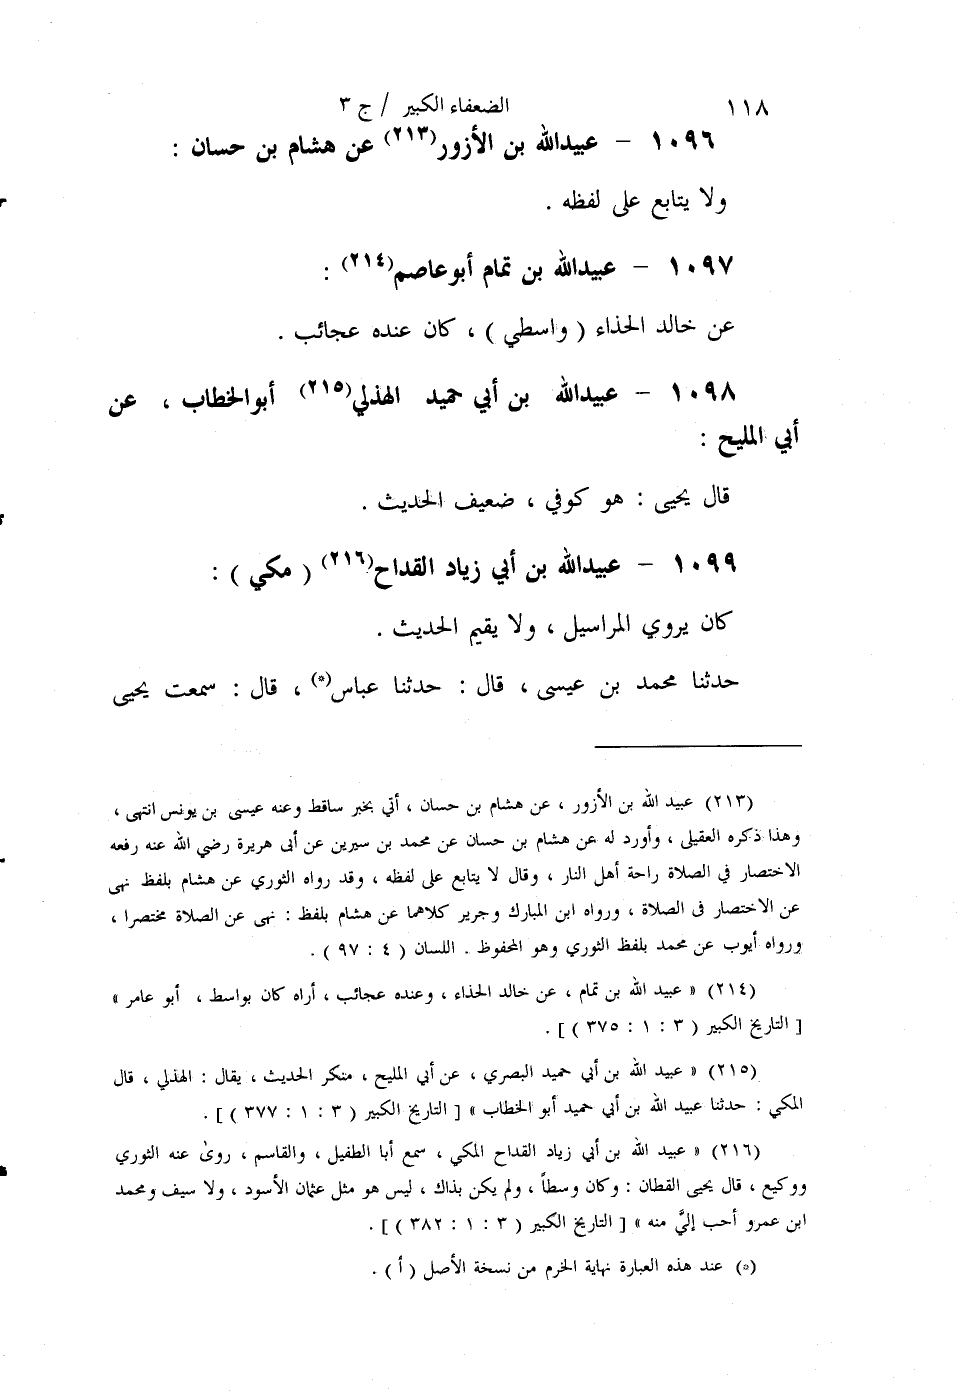 ١١٨ الضعفاء الكبير / ج ٣
١٠٩٦ – عبيدالله بن الأزور(٢١٣) عن هشام بن حسان :
ولا يتابع على لفظه .
١٠٩٧ – عبيدالله بن تمام أبوعاصم(٢١٤) :
عن خالد الحذاء ( واسطي ) ، كان عنده عجائب .
١٠٩٨ – عبيدالله بن أبي حميد الهذلي(٢١٥) أبوالخطاب ، عن
أبي المليح :
قال يحيى : هو كوفي ، ضعيف الحديث .
١٠٩٩ – عبيدالله بن أبي زياد القداح(٢١٦) ( مكي ) :
كان يروي المراسيل ، ولا يقيم الحديث .
حدثنا محمد بن عيسى ، قال : حدثنا عباس(*) ، قال : سمعت يحيى
(٢١٣) عبيد الله بن الأزور ، عن هشام بن حسان ، أتي بخبر ساقط وعنه عيسى بن يونس انتهى ،
وهذا ذكره العقيلي ، وأورد له عن هشام بن حسان عن محمد بن سيرين عن أبى هريرة رضي الله عنه رفعه
الاختصار في الصلاة راحة أهل النار ، وقال لا يتابع على لفظه ، وقد رواه الثوري عن هشام بلفظ نهى
عن الاختصار فى الصلاة ، ورواه ابن المبارك وجرير كلاهما عن هشام بلفظ : نهى عن الصلاة مختصرا ،
ورواه أيوب عن محمد بلفظ الثوري وهو المحفوظ . اللسان ( ٤ : ٩٧ ) .
(٢١٤) « عبيد الله بن تمام ، عن خالد الحذاء ، وعنده عجائب ، أراه كان بواسط ، أبو عامر »
[ التاريخ الكبير ( ٣ : ١ : ٣٧٥ ) ] .
(٢١٥) « عبيد الله بن أبي حميد البصري ، عن أبي المليح ، منكر الحديث ، يقال : الهذلي ، قال
المكي : حدثنا عبيد الله بن أبي حميد أبو الخطاب » [ التاريخ الكبير ( ٣ : ١ : ٣٧٧ ) ] .
(٢١٦) « عبيد الله بن أبي زياد القداح المكي ، سمع أبا الطفيل ، والقاسم ، روىٰ عنه الثوري
ووكيع ، قال يحيى القطان : وكان وسطاً ، ولم يكن بذاك ، ليس هو مثل عثمان الأسود ، ولا سيف ومحمد
ابن عمرو أحب إليَّ منه » [ التاريخ الكبير ( ٣ : ١ : ٣٨٢ ) ] .
(*) عند هذه العبارة نهاية الخرم من نسخة الأصل ( أ ) .